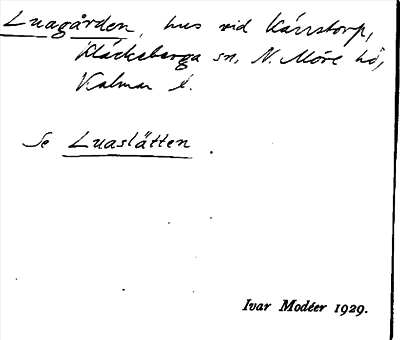 Luagården, hus vid Kärrstorp,
Kläckeberga sn, N. Möre hd,
Kalmar l.
Se Luaslätten.
Ivar Modéer 1929.